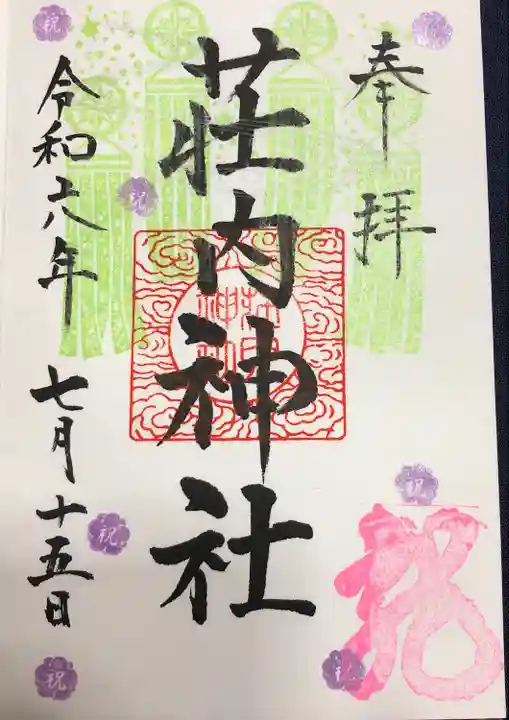 奉拝
荘内神社
令和六年 七月十五日
祝
祝
祝
祝
祝
祝
祝